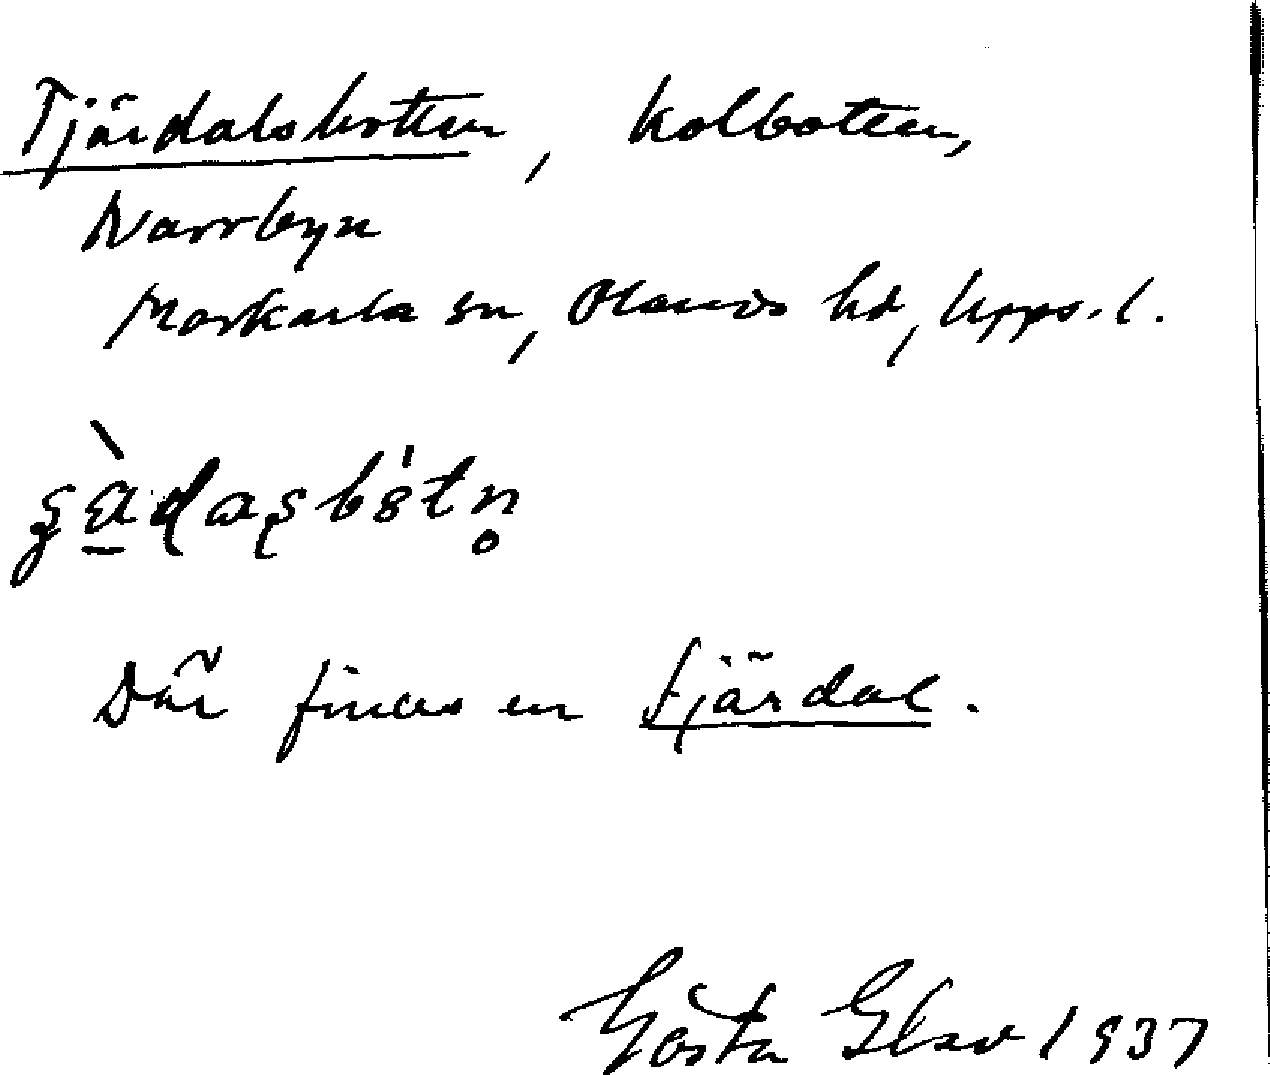 Tjärdalsbotten, kolbotten,
Norrbyn
Morkarla sn, Olands hd, Upps. l.
Där finnes en tjärdal.
Gösta Elsav 1937